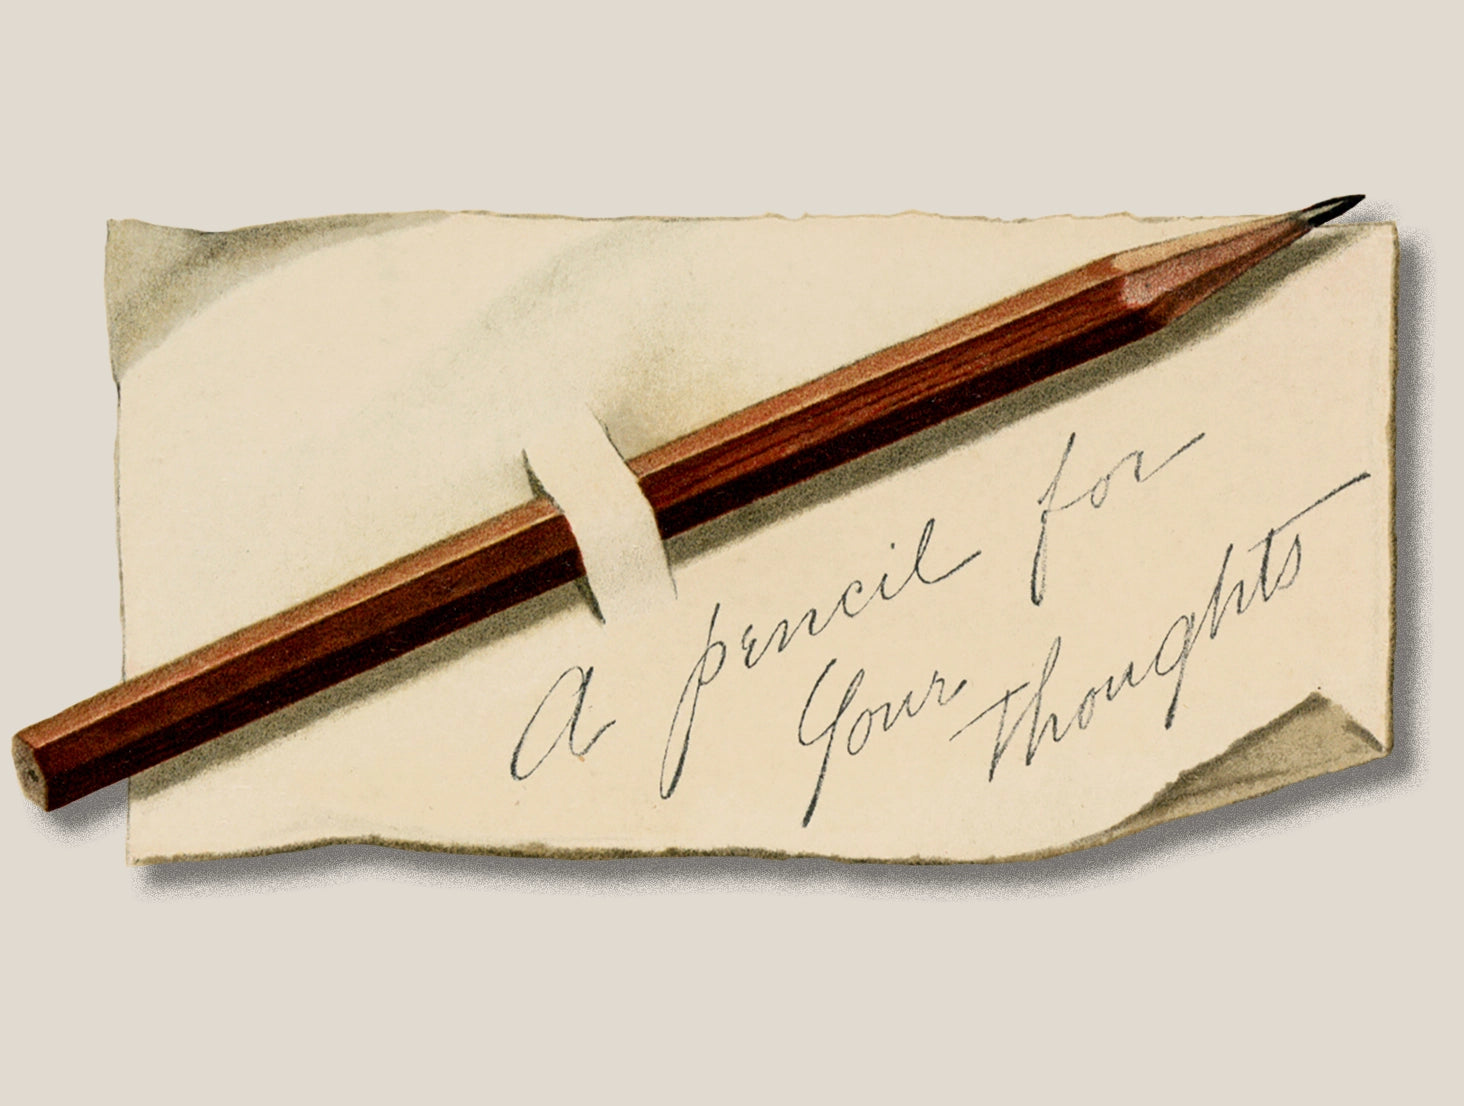 A pencil for
Your thoughts